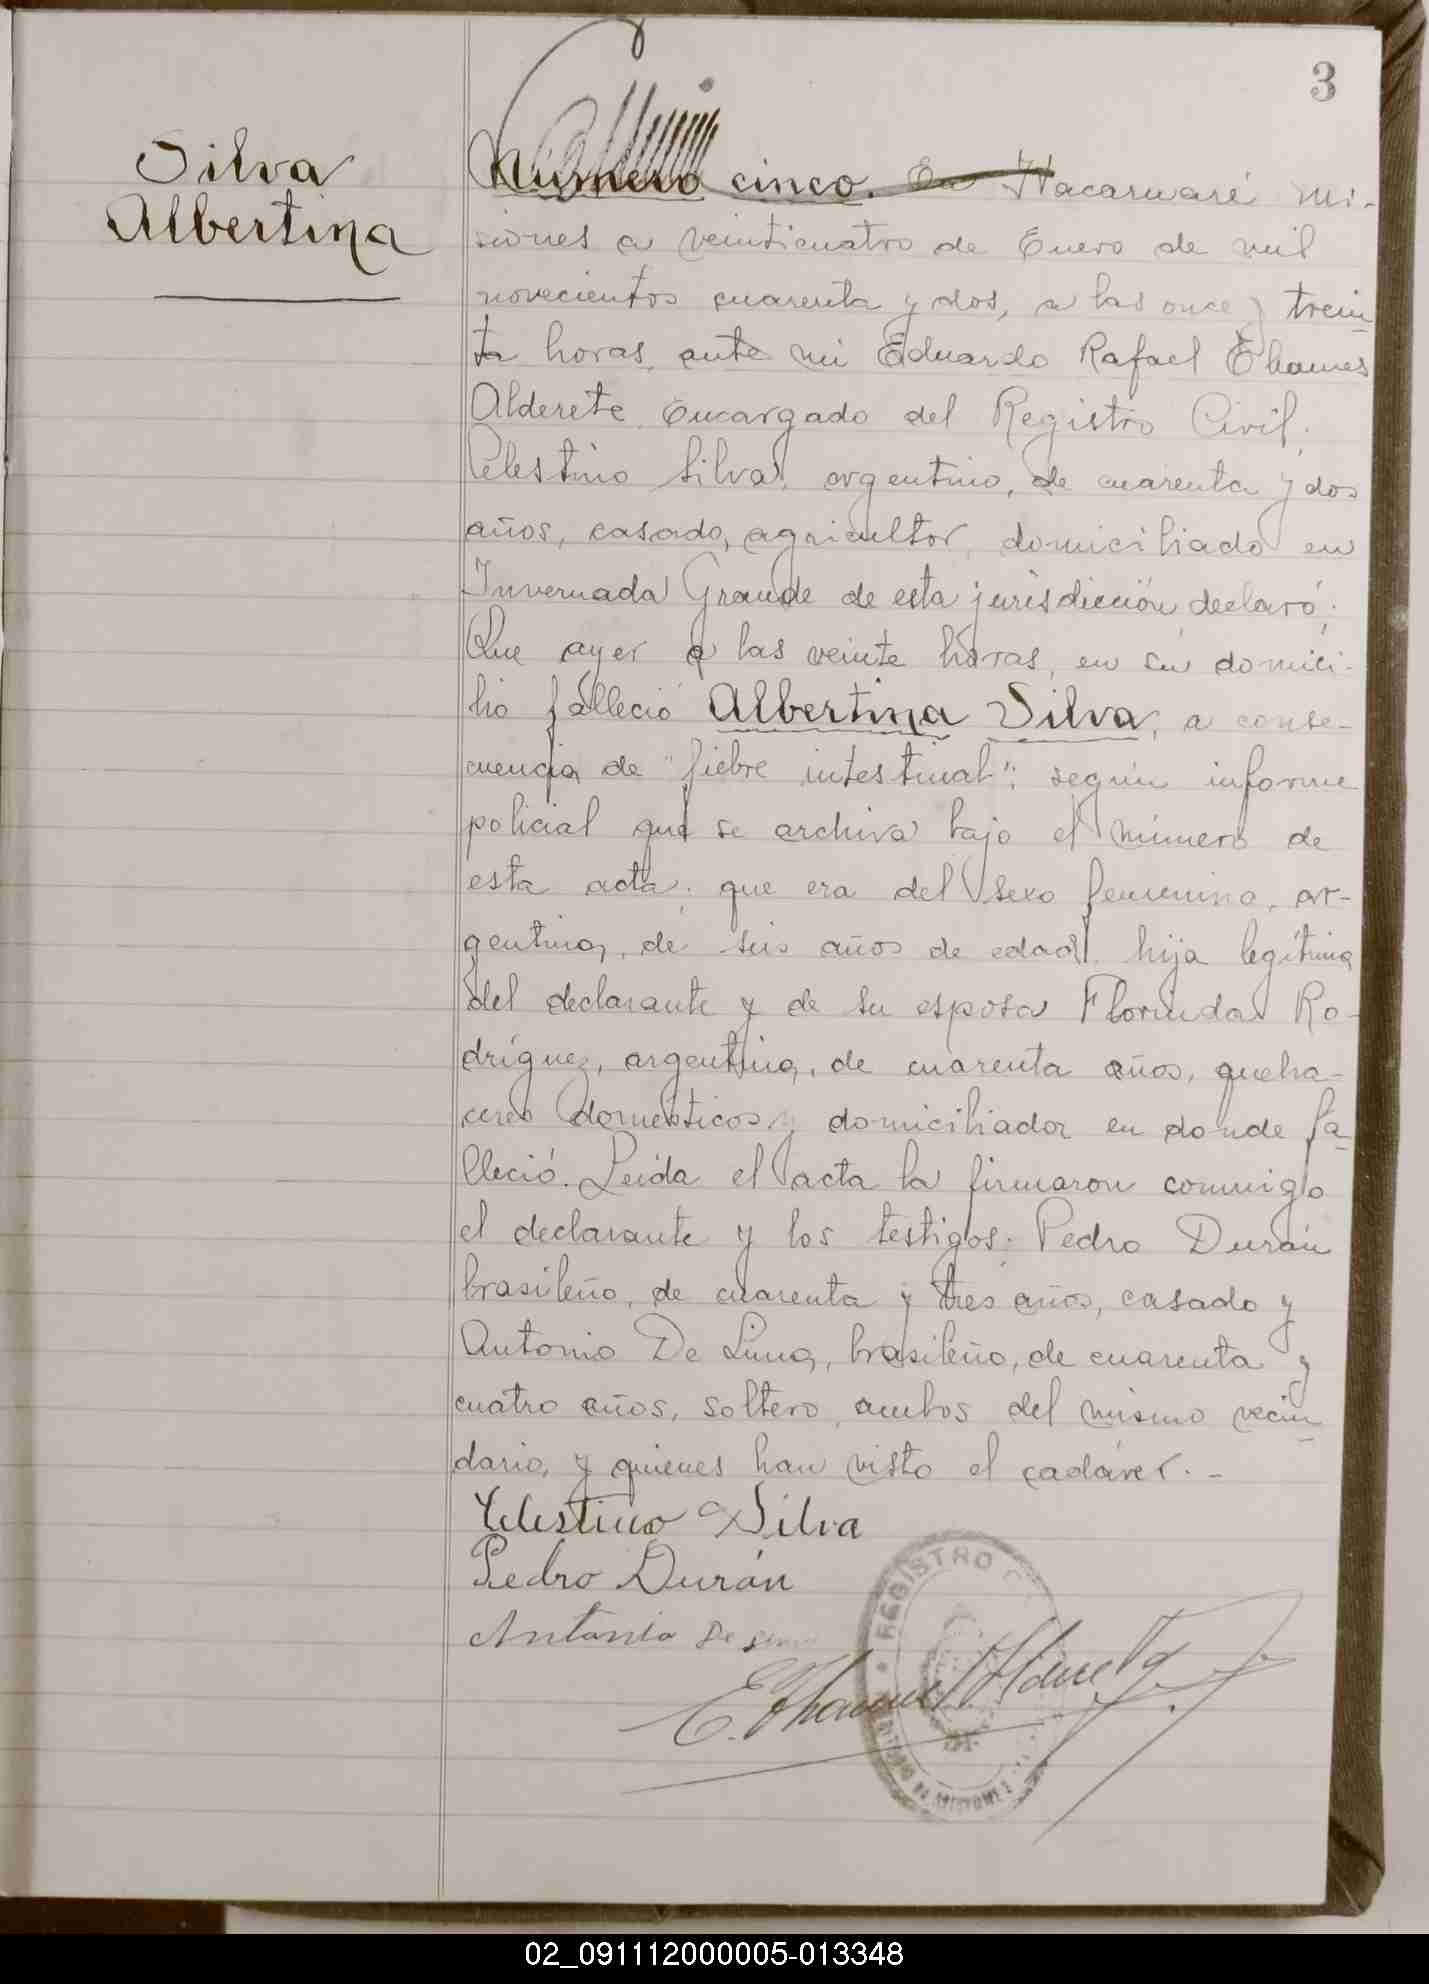 3
Silva
Albertina
Número cinco. En Itacaruaré Mi-
siones a veinticuatro de Enero de mil
novecientos cuarenta y dos, a las once y trein-
ta horas, ante mi Eduardo Rafael Thames
Alderete, Encargado del Registro Civil,
Celestino Silva, argentino, de cuarenta y dos
años, casado, agricultor, domiciliado en
Invernada Grande de esta jurisdicción declaró;
Que ayer a las veinte horas, en su domici-
lio falleció Albertina Silva, a conse-
cuencia de "fiebre intestinal"; según informe
policial que se archiva bajo el número de
esta acta; que era del sexo femenino, ar-
gentina, de seis años de edad, hija legítima
del declarante y de su esposa Florinda Ro-
dríguez, argentina, de cuarenta años, queha-
ceres domésticos y domiciliados en donde fa-
lleció. Leída el acta la firmaron conmigo
el declarante y los testigos: Pedro Durán
brasileño, de cuarenta y tres años, casado y
Antonio De Lima, brasileño, de cuarenta y
cuatro años, soltero, ambos del mismo vecin-
dario, y quienes han visto el cadáver.-
Celestino Silva
Pedro Durán
Antonio De
REGISTRO C
E. Thames Alderete
MISIONES
02_091112000005-013348